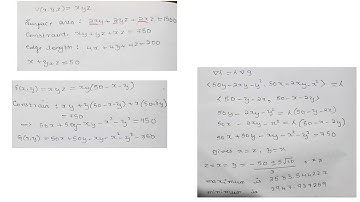 V(x,y,z) = xyz
Surface area: 2xy + 2yz + 2xz = 1500
Constraint: xy + yz + xz = 750
edge length: 4x + 4y + 4z = 200
x + y + z = 50
f(x,y) = xyz = xy(50 - x - y)
Constrain: xy + y(50-x-y) + x(50-x-y) = 750
⇒ 50x + 50y - xy - x² - y² = 750
g(x,y) = 50x + 50y - xy - x² - y² - 750
∇f = λ∇g
⟨50y - 2xy - y², 50x - 2xy - x²⟩ = λ
⟨50 - y - 2x, 50 - x - 2y⟩
50y - 2xy - y² = λ(50 - y - 2x)
50x - 2xy - x² = λ(50 - x - 2y)
50x + 50y - xy - x² - y² = 750
gives
maximum is
minimum is 2947.937209